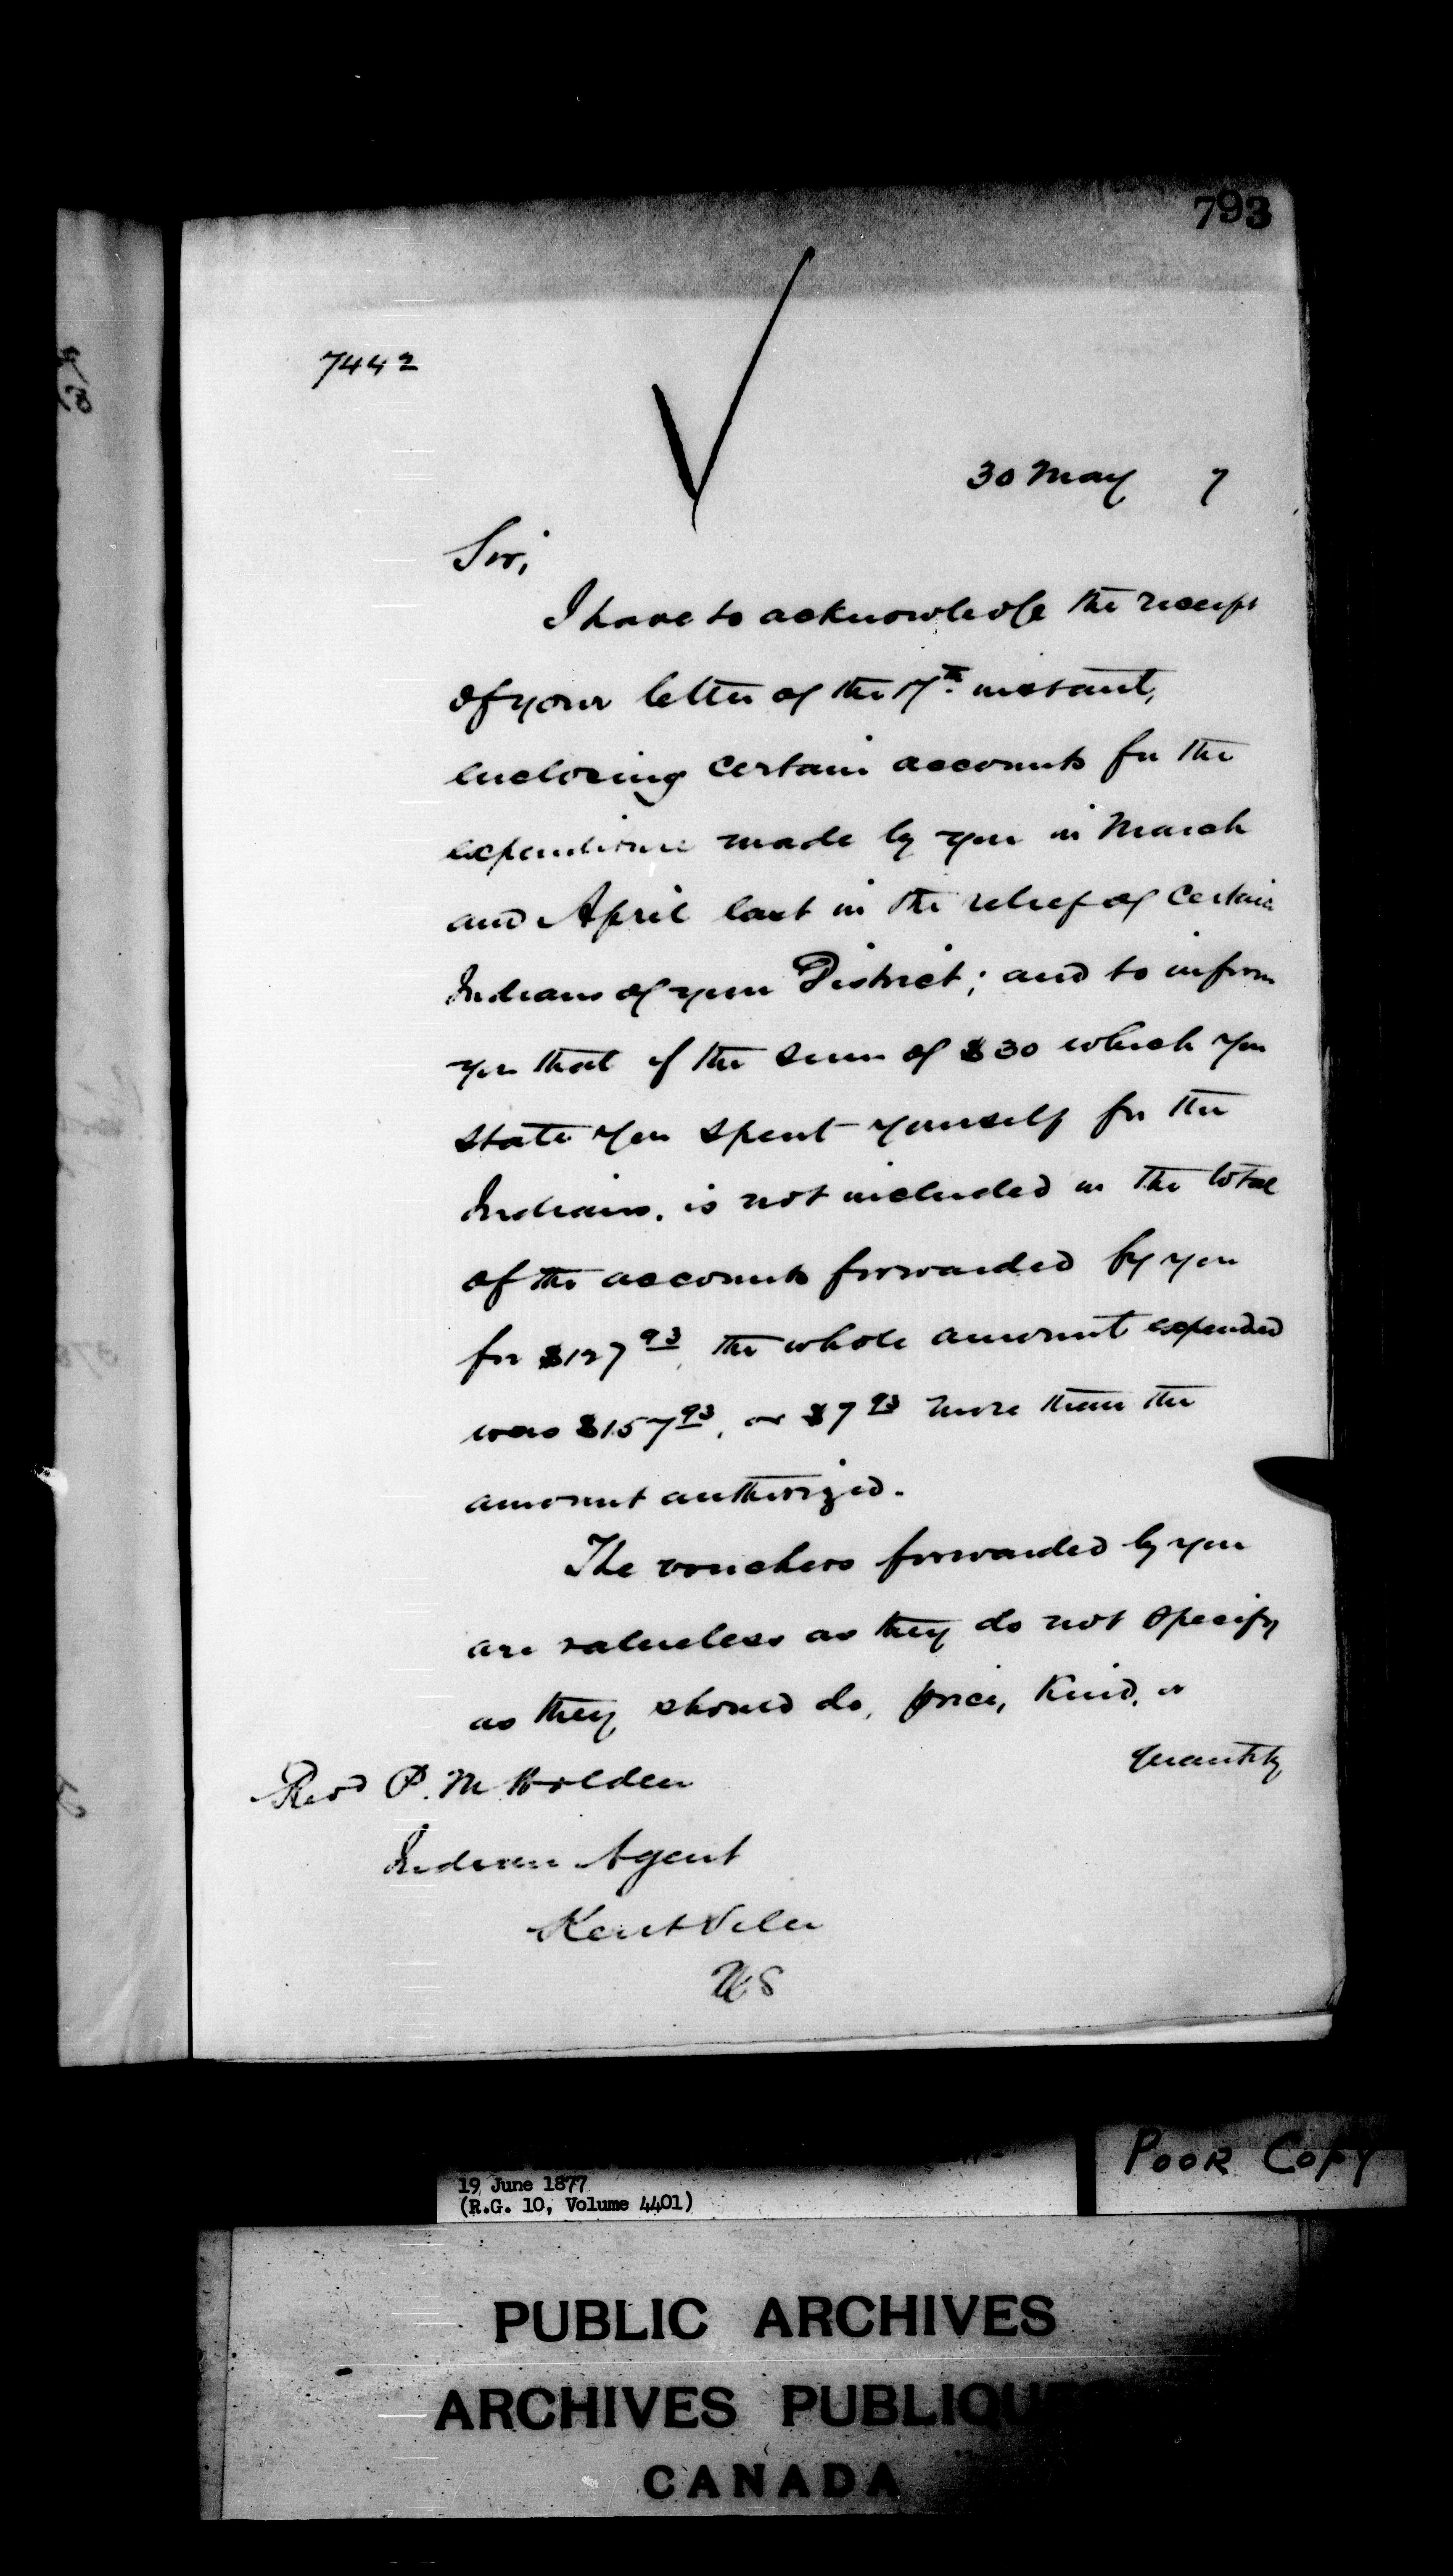 793
7442
30 May 7
Sir,
I have to acknowledge the receipt
of your letter of the 17th. instant,
enclosing certain accounts for the
expenditure made by you in March
and April last in the relief of certain
Indians of your District; and to inform
you that if the sum of $30 which you
state you spent yourself for the
Indians, is not included in the total
of the accounts forwarded by you
for $127 93, the whole amount expended
was $157 93, or $7 93 more than the
amount authorized.
The vouchers forwarded by you
are valueless as they do not specify
as they should do, price, kind, or
quantity
Revd P. M Holden
Indian Agent
KentVille
NS
POOR COPY
19 June 1877
(R.G. 10, Volume 4401)
PUBLIC ARCHIVES
ARCHIVES PUBLIQUES
CANADA